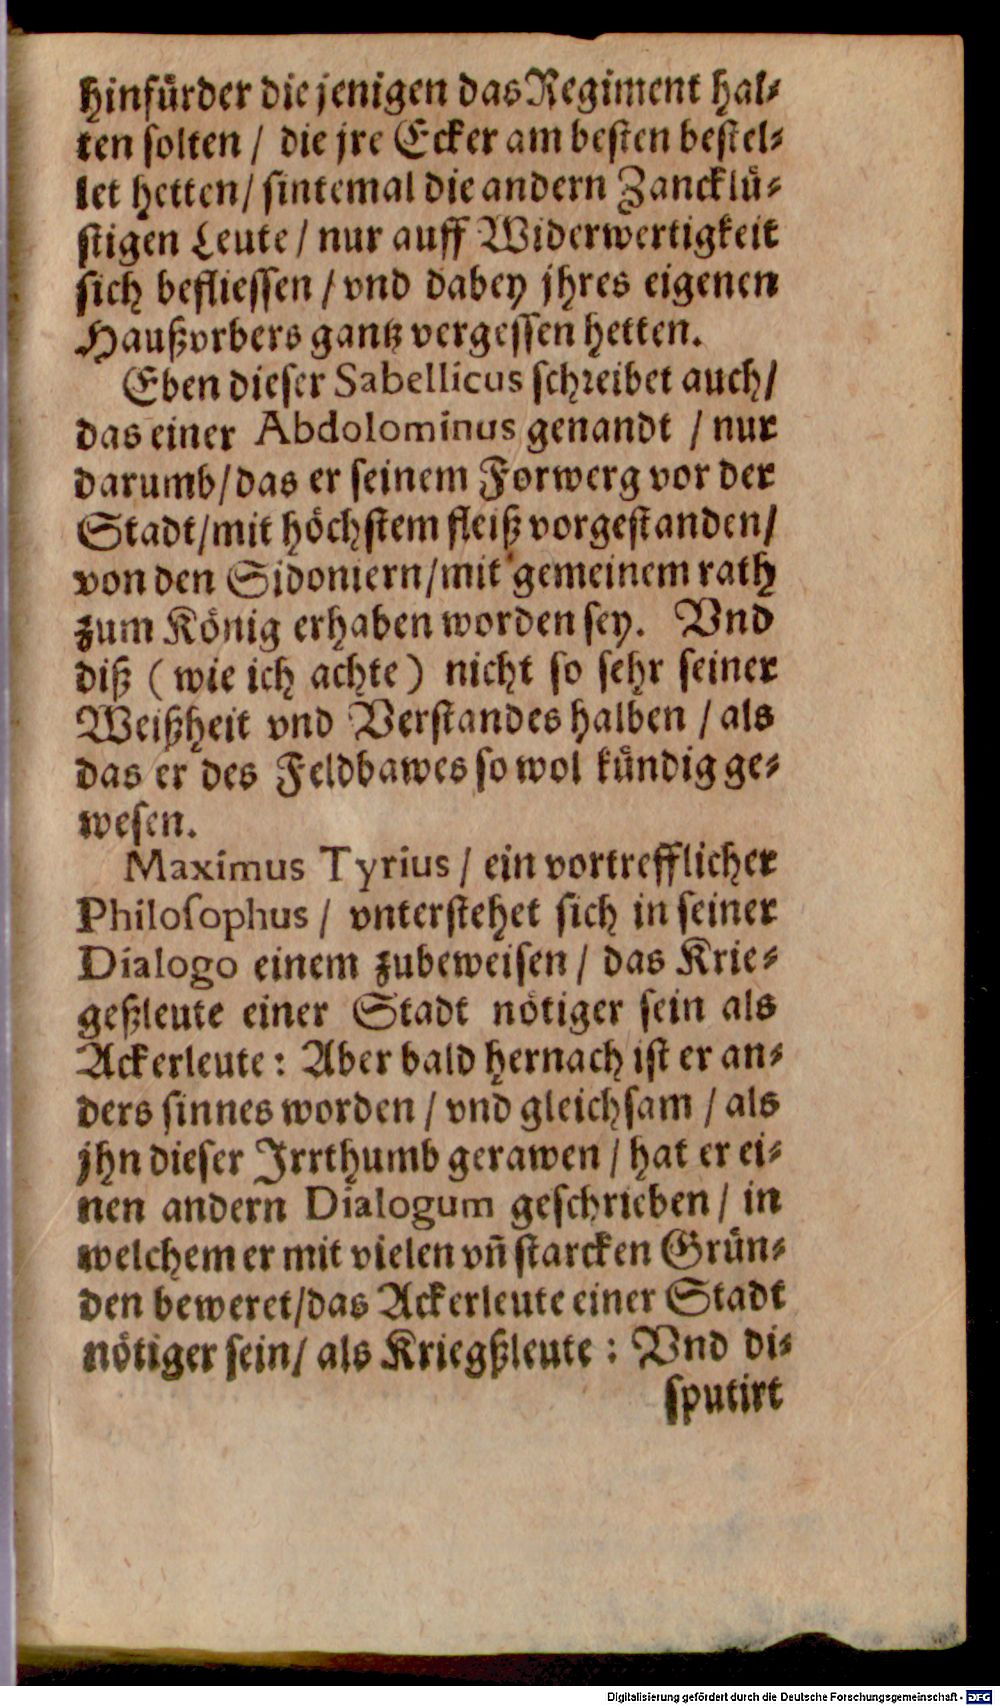 hinfürder die jenigen das Regiment hal-
ten solten / die jre Ecker am besten bestel-
let hetten / sintemal die andern Zancklü-
stigen Leute / nur auff Widerwertigkeit
sich befliessen / vnd dabey jhres eigenen
Haußvrbers gantz vergessen hetten.
Eben dieser Sabellicus schreibet auch /
das einer Abdolominus genandt / nur
darumb / das er seinem Forwerg vor der
Stadt / mit höchstem fleiß vorgestanden /
von den Sidoniern / mit gemeinem rath
zum König erhaben worden sey. Vnd
diß ( wie ich achte ) nicht so sehr seiner
Weißheit vnd Verstandes halben / als
das er des Feldbawes so wol kündig ge-
wesen.
Maximus Tyrius / ein vortrefflicher
Philosophus / vnterstehet sich in seiner
Dialogo einem zubeweisen / das Krie-
geßleute einer Stadt nötiger sein als
Ackerleute : Aber bald hernach ist er an-
ders sinnes worden / vnd gleichsam / als
jhn dieser Irrthumb gerawen / hat er ei-
nen andern Dialogum geschrieben / in
welchem er mit vielen vñ starcken Grün-
den beweret / das Ackerleute einer Stadt
nötiger sein / als Kriegßleute : Vnd di-
sputirt
Digitalisierung gefördert durch die Deutsche Forschungsgemeinschaft - DFG